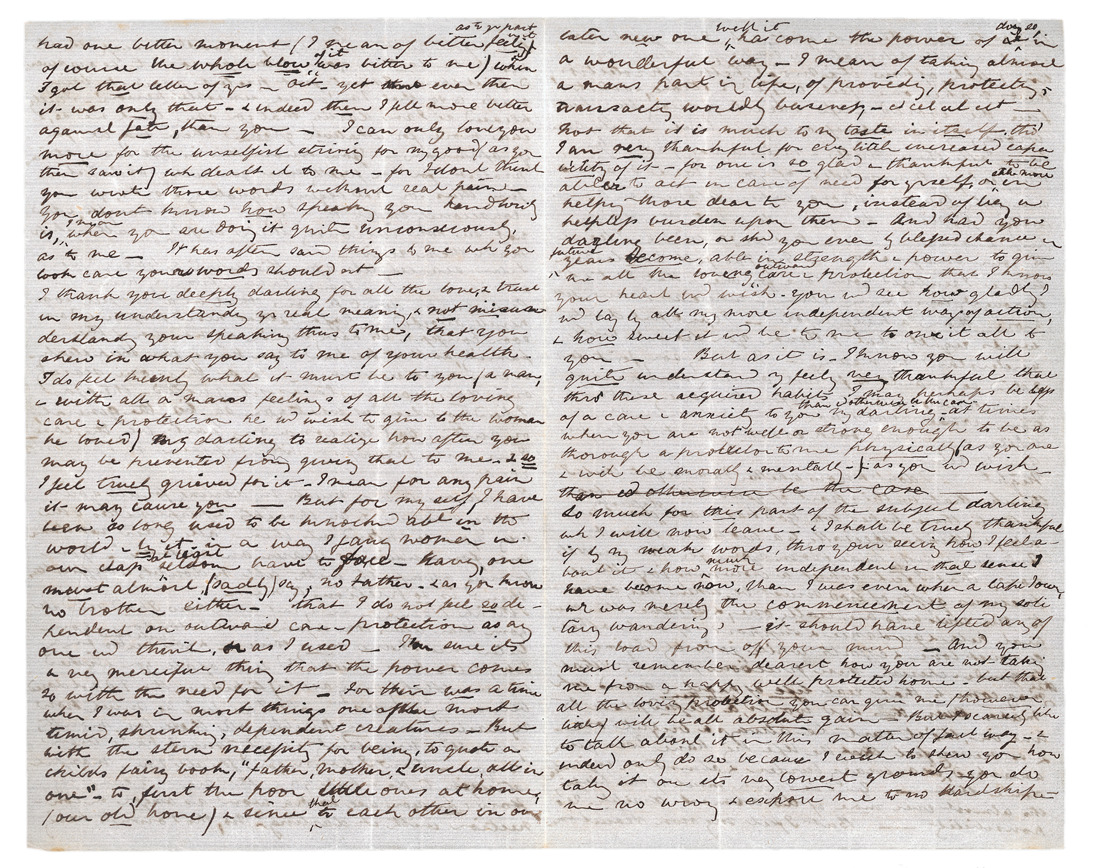 as to yr part
in it
had one better moment (I mean of bitter feeling)
of course the whole blow itself was bitter to me) when
I got that letter of yrs – sit – yet even then
it was only that – & indeed then I felt more bitter
against fate, than you – I can only love you
more for the unselfish striving for my good (as you
then saw it) wh dealt it to me – for I don't think
you wrote those words without real pain –
You don't know how speaking your handwriting
is, when you are doing it quite unconsciously,
as to me – It has often said things to me wh you
took care your words should not –
I thank you deeply darling for all the love & trust
in my understandg yr real meaning, & not misun
derstandg your speaking thus to me, that you
shew in what you say to me of your health –
I do feel keenly what it must be to you (a man,
& with all a man's feelings of all the loving
care & protection he wd wish to give to the woman
he loved) my darling to realize how often you
may be prevented from giving that to me – & so
I feel truly grieved for it – I mean for any pain
it may cause you – But for myself, I have
been so long used to be knockd abt in the
world – in a way I fancy women in
our class seldom have to face – having, one
must almost, (sadly) say, no father – & as you know
no brother either – that I do not feel so de-
pendent on outward care & protection as any
one wd think, or as I used – I'm sure its
a very merciful thing that the power comes
so with the need for it – For there was a time
when I was in most things one of the most
timid, shrinking, dependent creatures – But
with the stern necessity for being, to quote a
childs fairy book, "father, mother, & uncle, all in
one" – to, first the poor little ones at home,
(our old home) & since that to each other in our
later new one, has come the power of doing so, in
with it
a wonderful way – I mean of taking almost
a mans part in life, of providing, protecting,
transactg worldly business – et cet et cet –
Not that it is much to my taste in itself. tho'
I am very thankful for evy little increased capa
bility of it – for one is so glad & thankful to be
able to act in case of need for yrself, or in
helping those dear to you, instead of being a
helpless burden upon them – And had you
darling been, or shd you ever by blessed chance in
future years become, able in strength & power to give
me all the loving outward care & protection that I know
your heart wd wish – you wd see how gladly I
wd lay by all my more independent ways of action,
& how sweet it wd be to me to owe it all to
you – But as it is – I know you will
quite understand my feelg very thankful that
thro these acquired habits I may perhaps be less
of a care & anxiety to you my darling – at times
than otherwise wd be the case
when you are not well or strong enough to be as
thorough a protector to me physically (as you are
& will be morally & mentally –) as you wd wish –
than wd otherwise be the case
So much for this part of the subject darling
wh I will now leave – & I shall be truly thankful
if by my weak words, thro your seeing how I feel a-
bout it & how much more independent in that sense I
have become now, than I was even when at Cape Town
wh was merely the commencement of my soli
tary wanderings – it should have lifted any of
this load from off your mind – And you
must remember dearest how you are not taking
me from a happy well protected home – but that
all the loving protection you can give me (however
little) will be all absolute gain – But I scarcely like
to talk about it in this matter of fact way – &
indeed only do so because I wish to shew you how
taking it on its very lowest grounds you do
me no wrong & expose me to no hardships